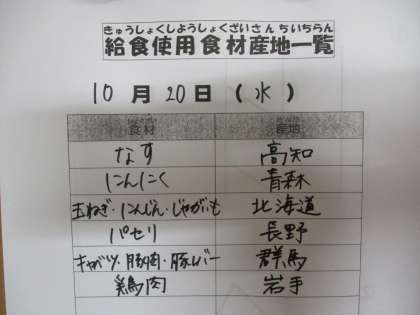 きゅうしょくしようしょくざいさんちいちらん
給食使用食材産地一覧
10月20日(水)
食材 産地
なす 高知
にんにく 青森
玉ねぎ・にんじん・じゃがいも 北海道
パセリ 長野
キャベツ・豚肉・豚レバー 群馬
鶏肉 岩手